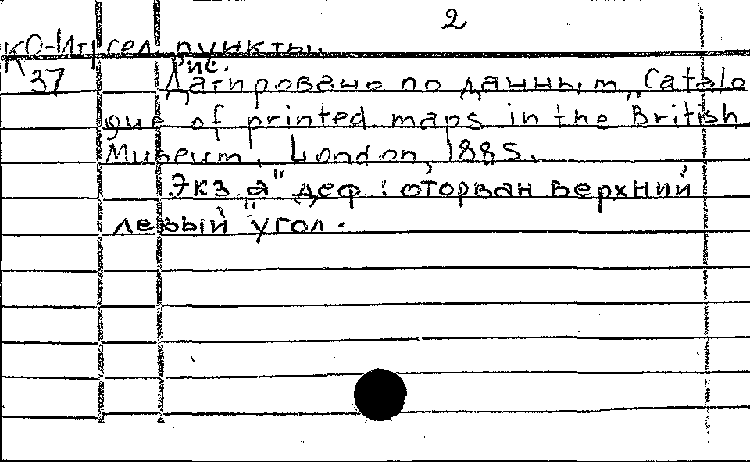 2
КО-Итр сел. пункты.
К 37 Рис.
Датировано по данным „Catalo
gue of printed maps in the British
Museum. London, 1885.
Экз „а" деф.: оторван верхний
левый угол.